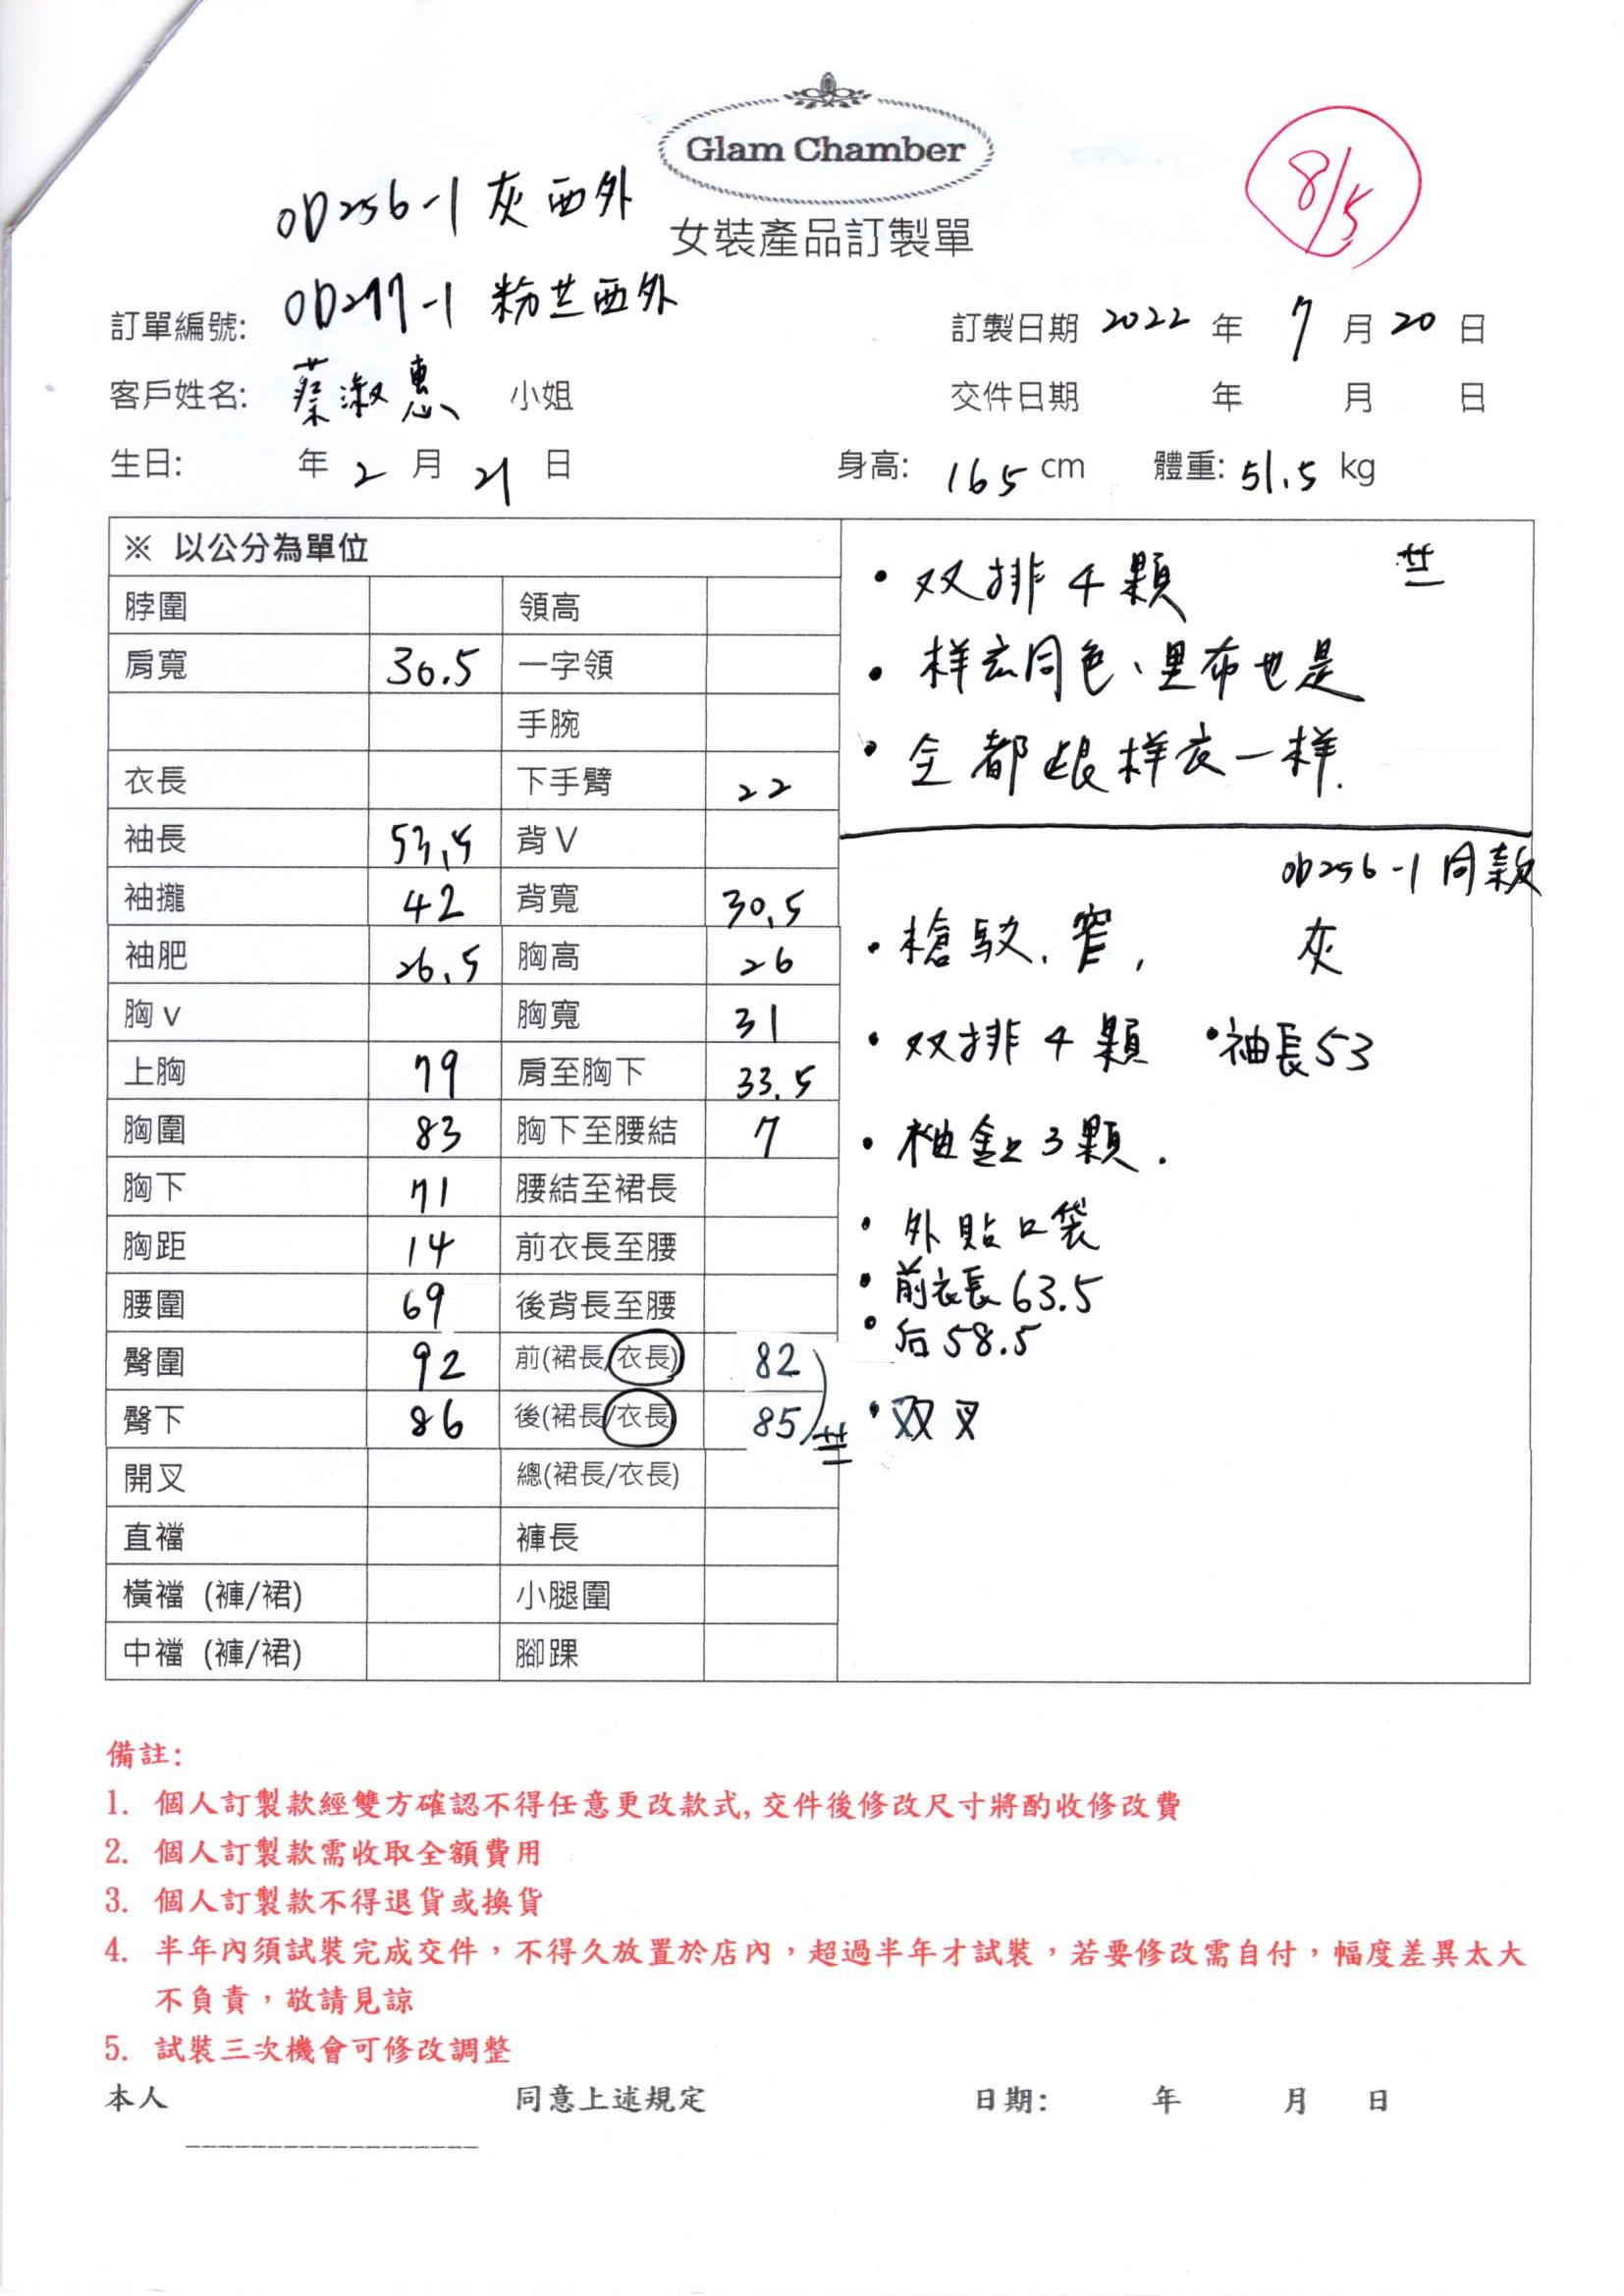 Glam Chamber
8/5
OD256-1 灰西外
女裝產品訂製單
OD277-1 粉芷西外
訂單編號: 訂製日期 2022 年 7 月 20 日
客戶姓名: 蔡淑惠 小姐 交件日期 年 月 日
生日: 年 2 月 21 日 身高: 165 cm 體重: 51.5 kg
※ 以公分為單位
脖圍 領高
肩寬 36.5 一字領
手腕
衣長 下手臂 22
袖長 53.5 背V
袖攏 42 背寬 30.5
袖肥 26.5 胸高 26
胸v 胸寬 31
上胸 79 肩至胸下 33.5
胸圍 83 胸下至腰結 7
胸下 71 腰結至裙長
胸距 14 前衣長至腰
腰圍 69 後背長至腰
臀圍 92 前(裙長/衣長) 82
臀下 86 後(裙長/衣長) 85
開叉 總(裙長/衣長)
直襠 褲長
橫襠 (褲/裙) 小腿圍
中襠 (褲/裙) 腳踝
• 双排4顆
• 样衣同色、里布也是
• 全都跟样衣一样.
OD256-1 同款
• 槍駁、窄, 灰
• 双排4顆 • 袖長53
• 袖釦3顆.
• 外貼口袋
• 前衣長63.5
• 后58.5
• 双叉
備註:
1. 個人訂製款經雙方確認不得任意更改款式,交件後修改尺寸將酌收修改費
2. 個人訂製款需收取全額費用
3. 個人訂製款不得退貨或換貨
4. 半年內須試裝完成交件，不得久放置於店內，超過半年才試裝，若要修改需自付，幅度差異太大
不負責，敬請見諒
5. 試裝三次機會可修改調整
本人 同意上述規定 日期: 年 月 日